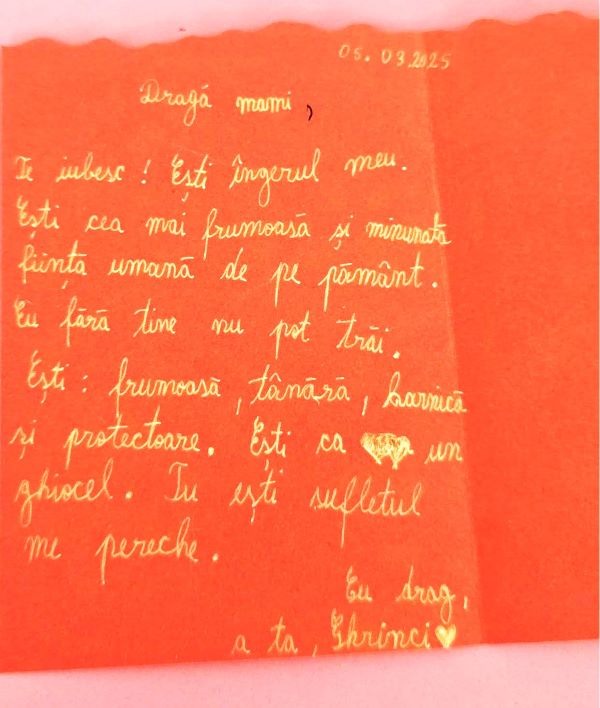 05.03.2025
Dragă mami,
Te iubesc! Ești îngerul meu.
Ești cea mai frumoasă și minunată
ființă umană de pe pământ.
Eu fără tine nu pot trăi.
Ești: frumoasă, tânără, harnică
și protectoare. Ești ca un
ghiocel. Tu ești sufletul
me pereche.
Cu drag,
a ta, Ghrinci